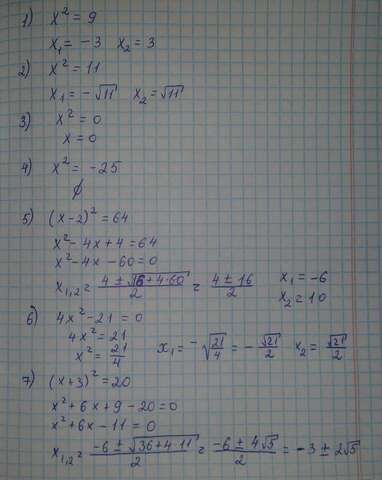 1) x² = 9
x₁ = -3 x₂ = 3
2) x² = 11
x₁ = -√11 x₂ = √11
3) x² = 0
x = 0
4) x² = -25
∅
5) (x-2)² = 64
x² - 4x + 4 = 64
x² - 4x - 60 = 0
x₁,₂ = (4 ± √(16+4·60))/2 = (4 ± 16)/2 x₁ = -6
x₂ = 10
6) 4x² - 21 = 0
4x² = 21
x² = 21/4 x₁ = -√(21/4) = -√21/2 x₂ = √21/2
7) (x+3)² = 20
x² + 6x + 9 - 20 = 0
x² + 6x - 11 = 0
x₁,₂ = (-6 ± √(36+4·11))/2 = (-6 ± 4√5)/2 = -3 ± 2√5